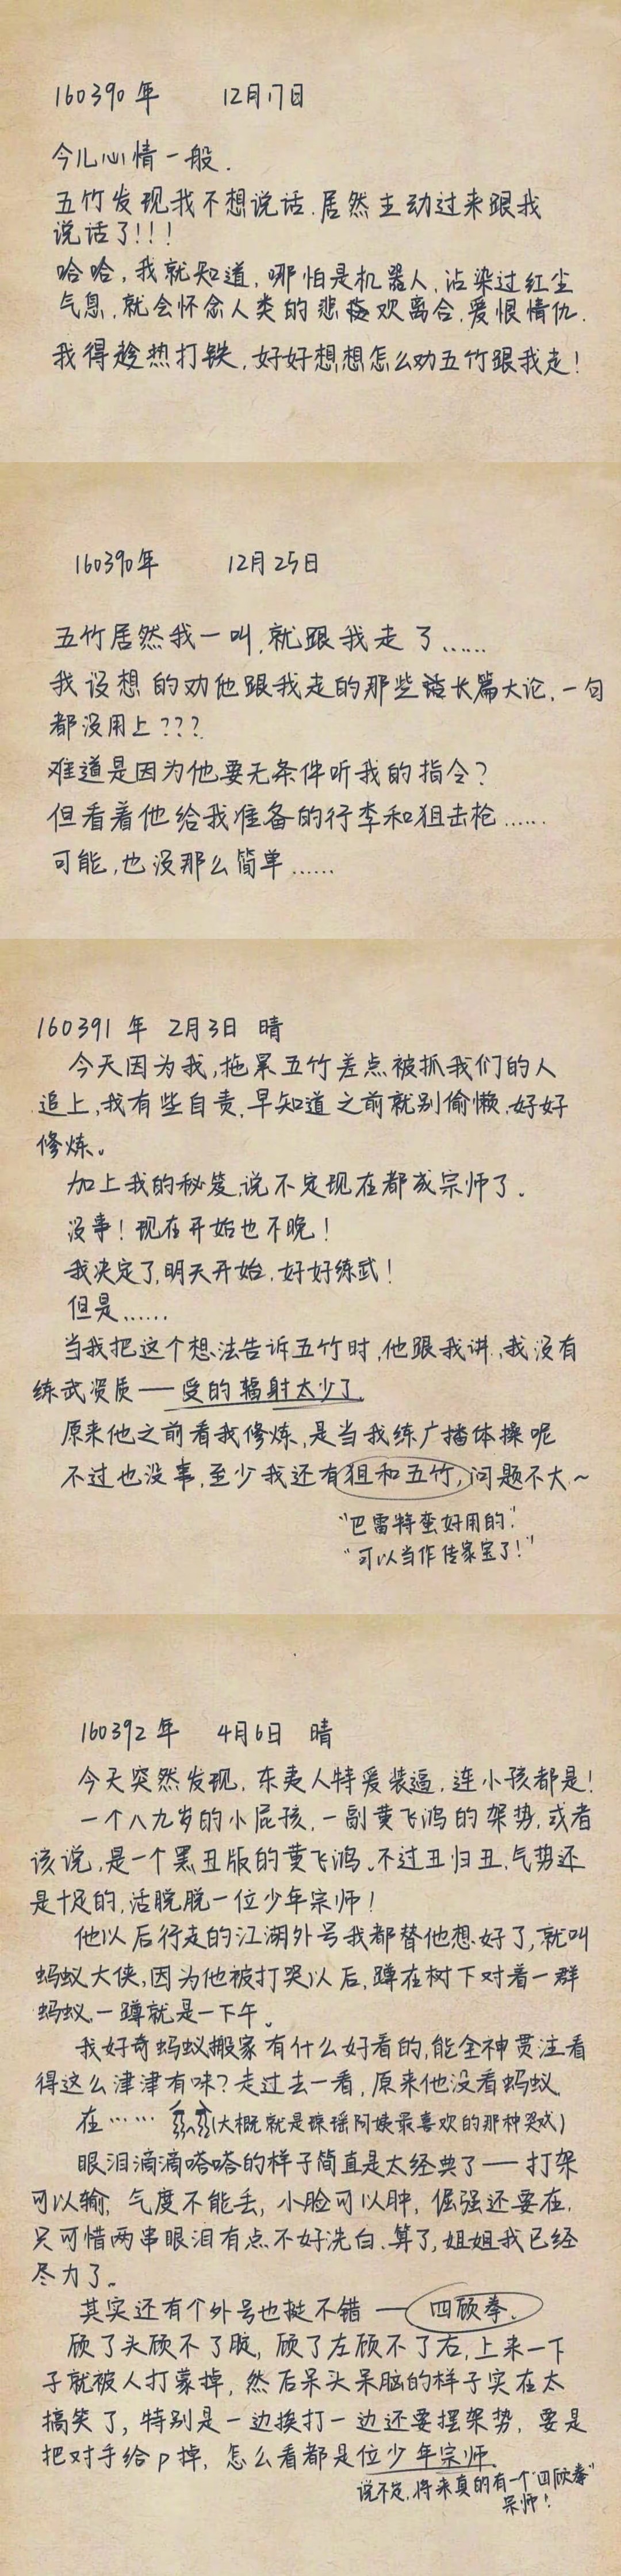 160390年 12月17日
今儿心情一般.
五竹发现我不想说话.居然主动过来跟我
说话了!!!
哈哈,我就知道,哪怕是机器人,沾染过红尘
气息,就会怀念人类的悲欢离合.爱恨情仇.
我得趁热打铁,好好想想怎么劝五竹跟我走!
160390年 12月25日
五竹居然我一叫,就跟我走了……
我设想的劝他跟我走的那些长篇大论,一句
都没用上???
难道是因为他要无条件听我的指令?
但看着他给我准备的行李和狙击枪……
可能,也没那么简单……
160391年 2月3日 晴
今天因为我,拖累五竹差点被抓我们的人
追上,我有些自责.早知道之前就别偷懒.好好
修炼。
加上我的秘笈,说不定现在都成宗师了.
没事!现在开始也不晚!
我决定了,明天开始.好好练武!
但是……
当我把这个想法告诉五竹时,他跟我讲.我没有
练武资质——受的辐射太少了.
原来他之前看我修炼,是当我练广播体操呢
不过也没事,至少我还有狙和五竹,问题不大~
"巴雷特蛮好用的."
"可以当作传家宝了!"
160392年 4月6日 晴
今天突然发现,东夷人特爱装逼,连小孩都是!
一个八九岁的小屁孩,一副黄飞鸿的架势,或者
该说,是一个黑丑版的黄飞鸿。不过丑归丑,气势还
是十足的,活脱脱一位少年宗师!
他以后行走的江湖外号我都替他想好了,就叫
蚂蚁大侠,因为他被打哭以后,蹲在树下对着一群
蚂蚁.一蹲就是一下午。
我好奇蚂蚁搬家有什么好看的,能全神贯注看
得这么津津有味?走过去一看,原来他没看蚂蚁
在……(大概就是琼瑶阿姨最喜欢的那种哭戏)
眼泪滴滴嗒嗒的样子简直是太经典了——打架
可以输,气度不能丢,小脸可以肿,倔强还要在.
只可惜两串眼泪有点不好洗白.算了,姐姐我已经
尽力了。
其实还有个外号也挺不错——四顾拳.
顾了头顾不了腚,顾了左顾不了右,上来一下
子就被人打蒙掉,然后呆头呆脑的样子实在太
搞笑了,特别是一边挨打一边还要摆架势,要是
把对手给p掉,怎么看都是位少年宗师.
说不定,将来真的有一个"四顾拳"
宗师!